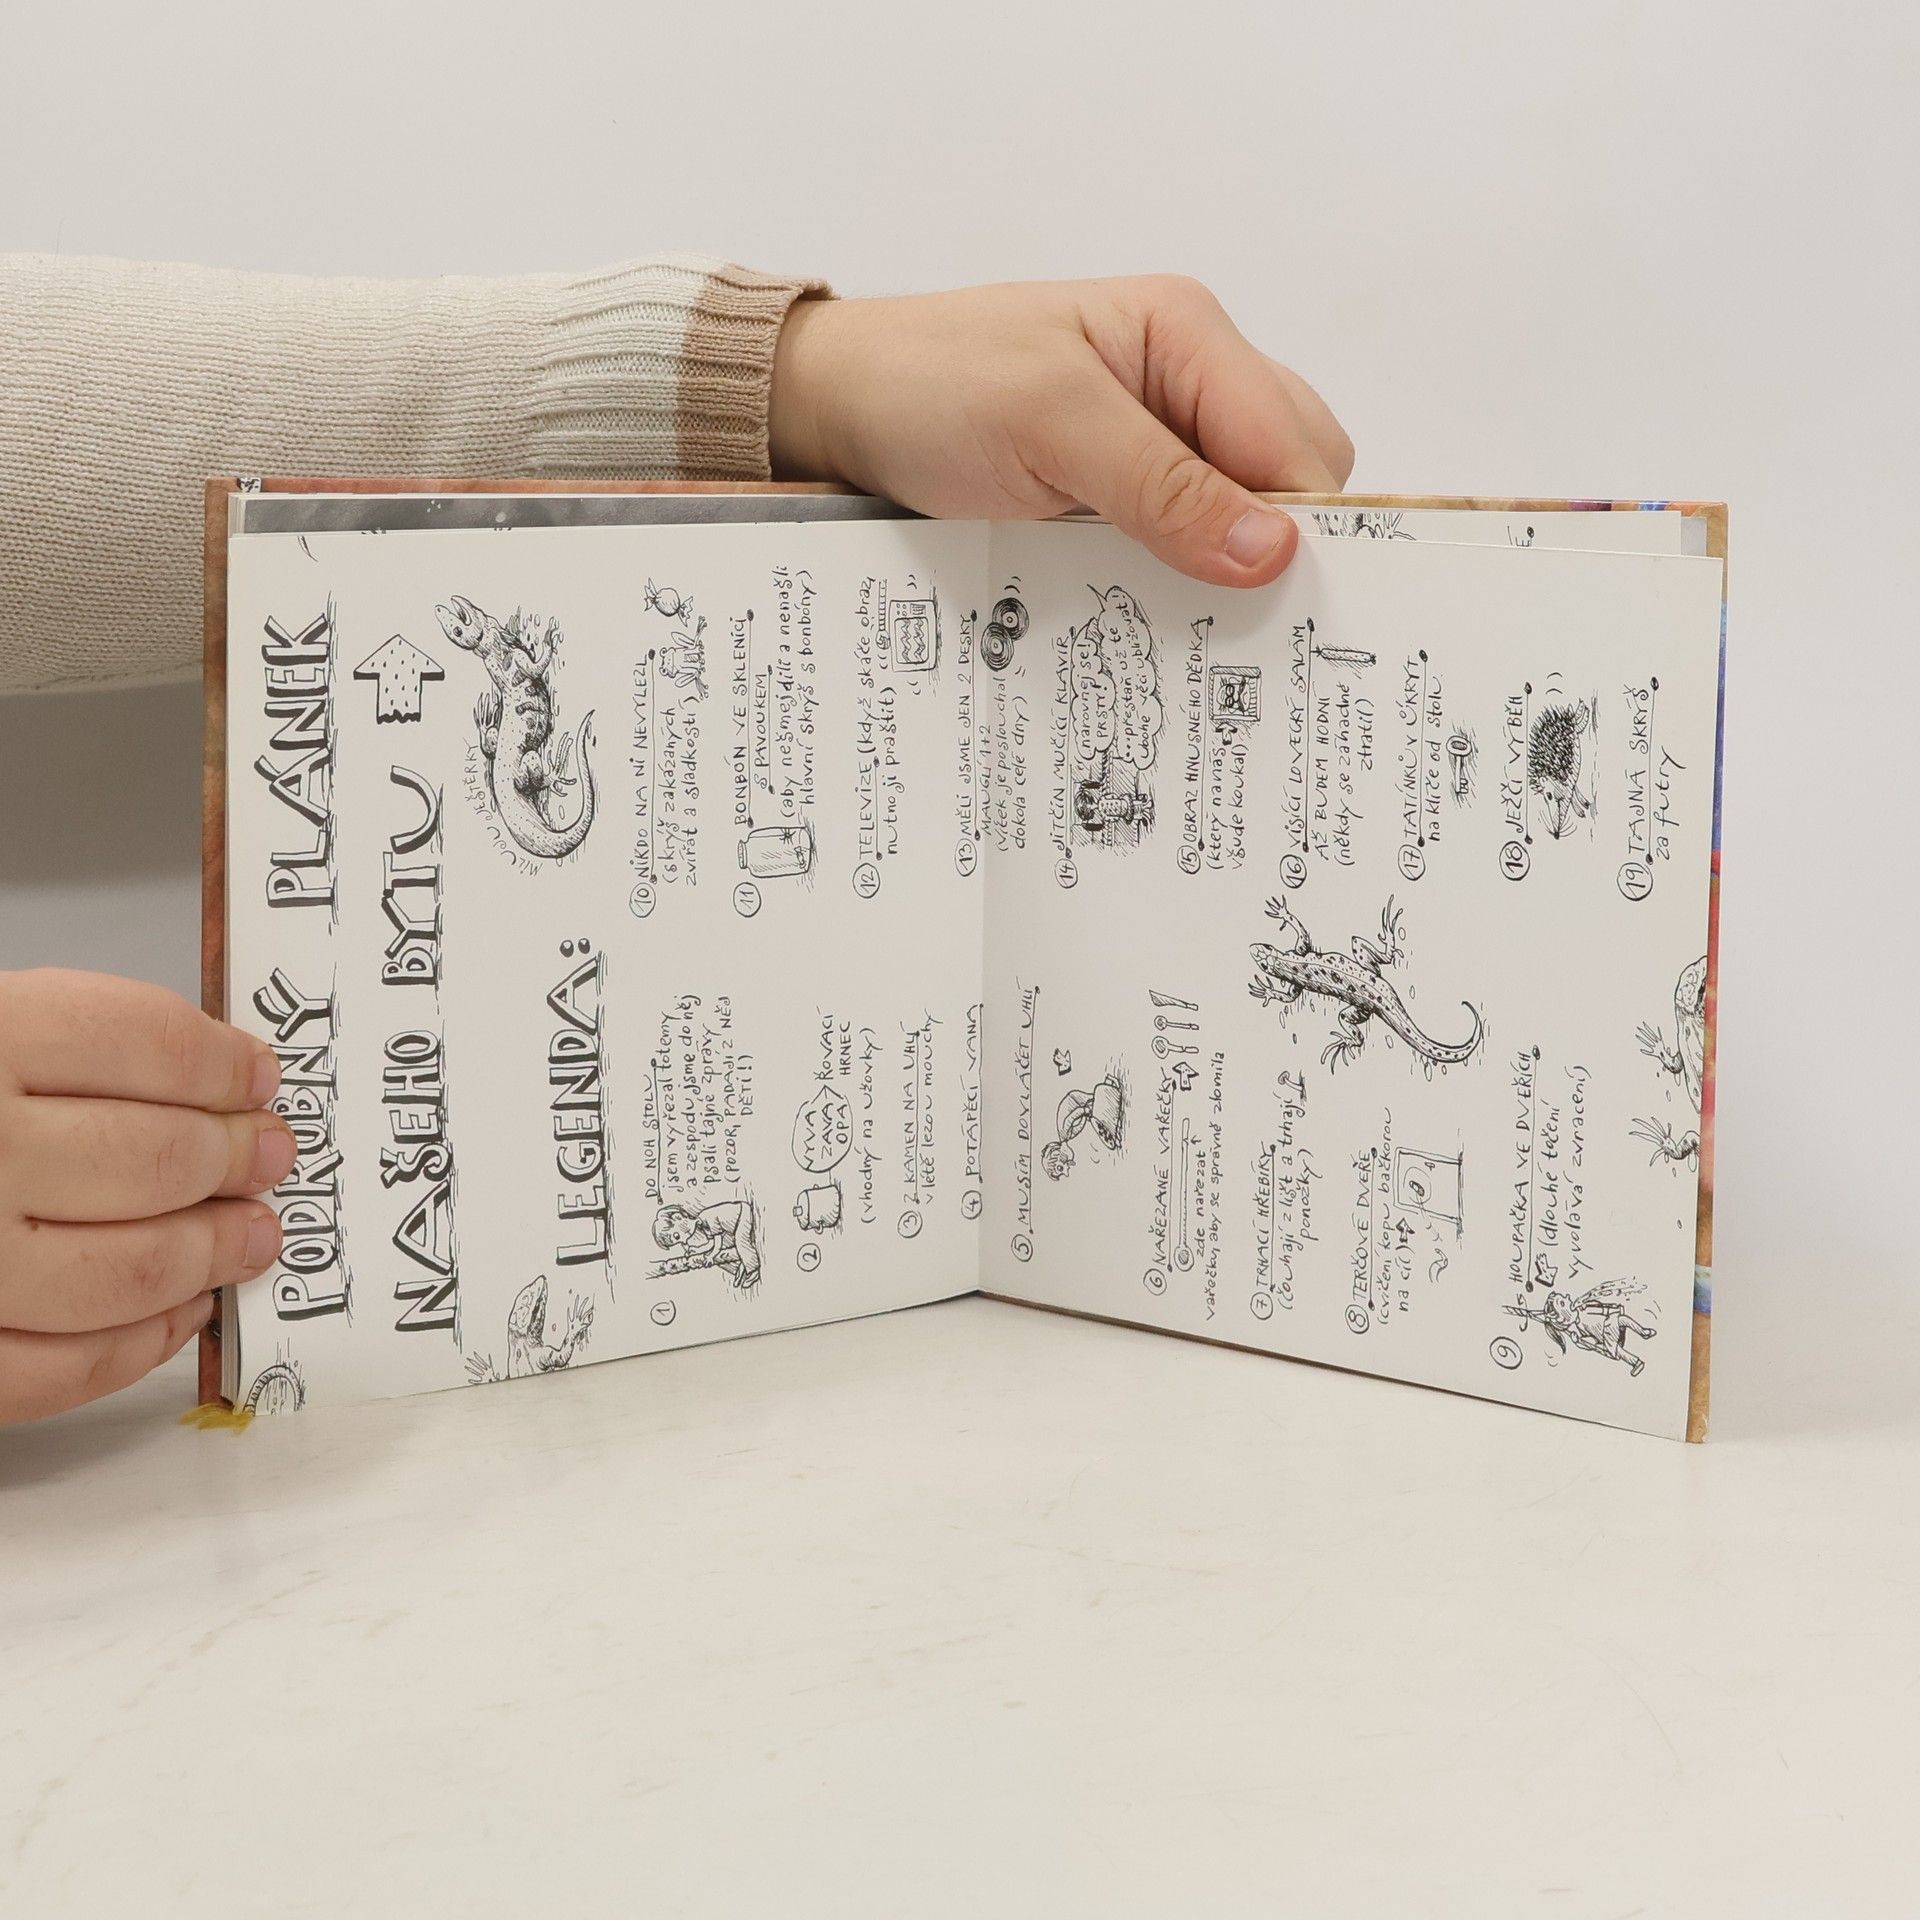 PODROBNÝ PLÁNEK
NAŠEHO BYTU
LEGENDA:
1 DO NOH STOLU
jsem vyřezal totemy
a zespodu jsme do něj
psali tajné zprávy
(POZOR, PADAJÍ Z NĚJ
DĚTI!!)
2 VYVA
ZAVA ŘOVACÍ
OPA HRNEC
(vhodný na užovky)
3 Z KAMEN NA UHLÍ
v létě lezou mouchy
4 POTÁPĚCÍ VANA
5 MUSÍM DOVLÁČET UHLÍ
6 NAŘEZANÉ VAŘEČKY
zde nařezat
vařečku, aby se správně zlomila
7 TRHACÍ HŘEBÍKY
(čouhají z lišt a trhají
ponožky)
8 TERČOVÉ DVEŘE
(cvičení kopu bačkorou
na cíl)
9 HOUPAČKA VE DVEŘÍCH
(dlouhé točení
vyvolává zvracení)
JEŠTĚRKY
10 NIKDO NA NI NEVYLEZL
(skrýš zakázaných
zvířat a sladkostí)
11 BONBÓN VE SKLENICI
S PAVOUKEM
(aby nešmejdili a nenašli
hlavní skrýš s bonbóny)
12 TELEVIZE (když skáče obraz,
nutno ji praštit)
13 MĚLI JSME JEN 2 DESKY
MAUGLÍ 1+2
(Vítek je poslouchal
dokola celé dny)
14 JITČIN MUČÍCÍ KLAVÍR
narovnej se!
PRSTY!
...přestaň už té
ubohé věci ubližovat!
15 OBRAZ HNUSNÉHO DĚDKA
(který na nás
všude koukal)
16 VISÍCÍ LOVECKÝ SALÁM
AŽ BUDEM HODNÍ
(někdy se záhadně
ztratil)
17 TATÍNKŮV ÚKRYT
na klíče od stolu
18 JEŽČÍ VÝBĚH
19 TAJNÁ SKRÝŠ
za futry